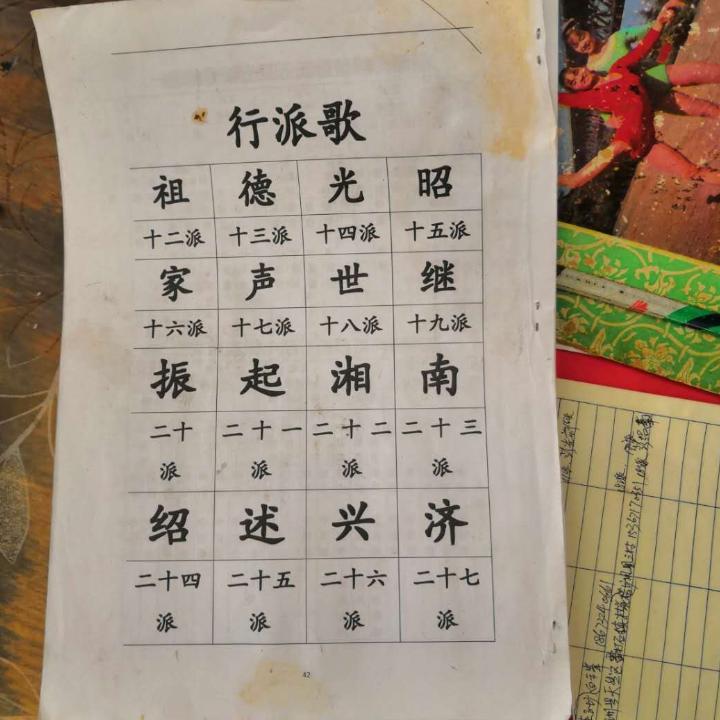 行派歌
祖 德 光 昭
十二派 十三派 十四派 十五派
家 声 世 继
十六派 十七派 十八派 十九派
振 起 湘 南
二十 二十一 二十二 二十三
派 派 派 派
绍 述 兴 济
二十四 二十五 二十六 二十七
派 派 派 派
42